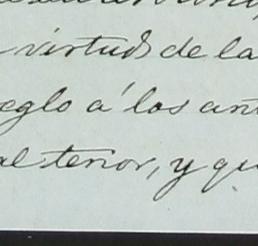 virtud de la
eglo á los an
al tenor, y qu